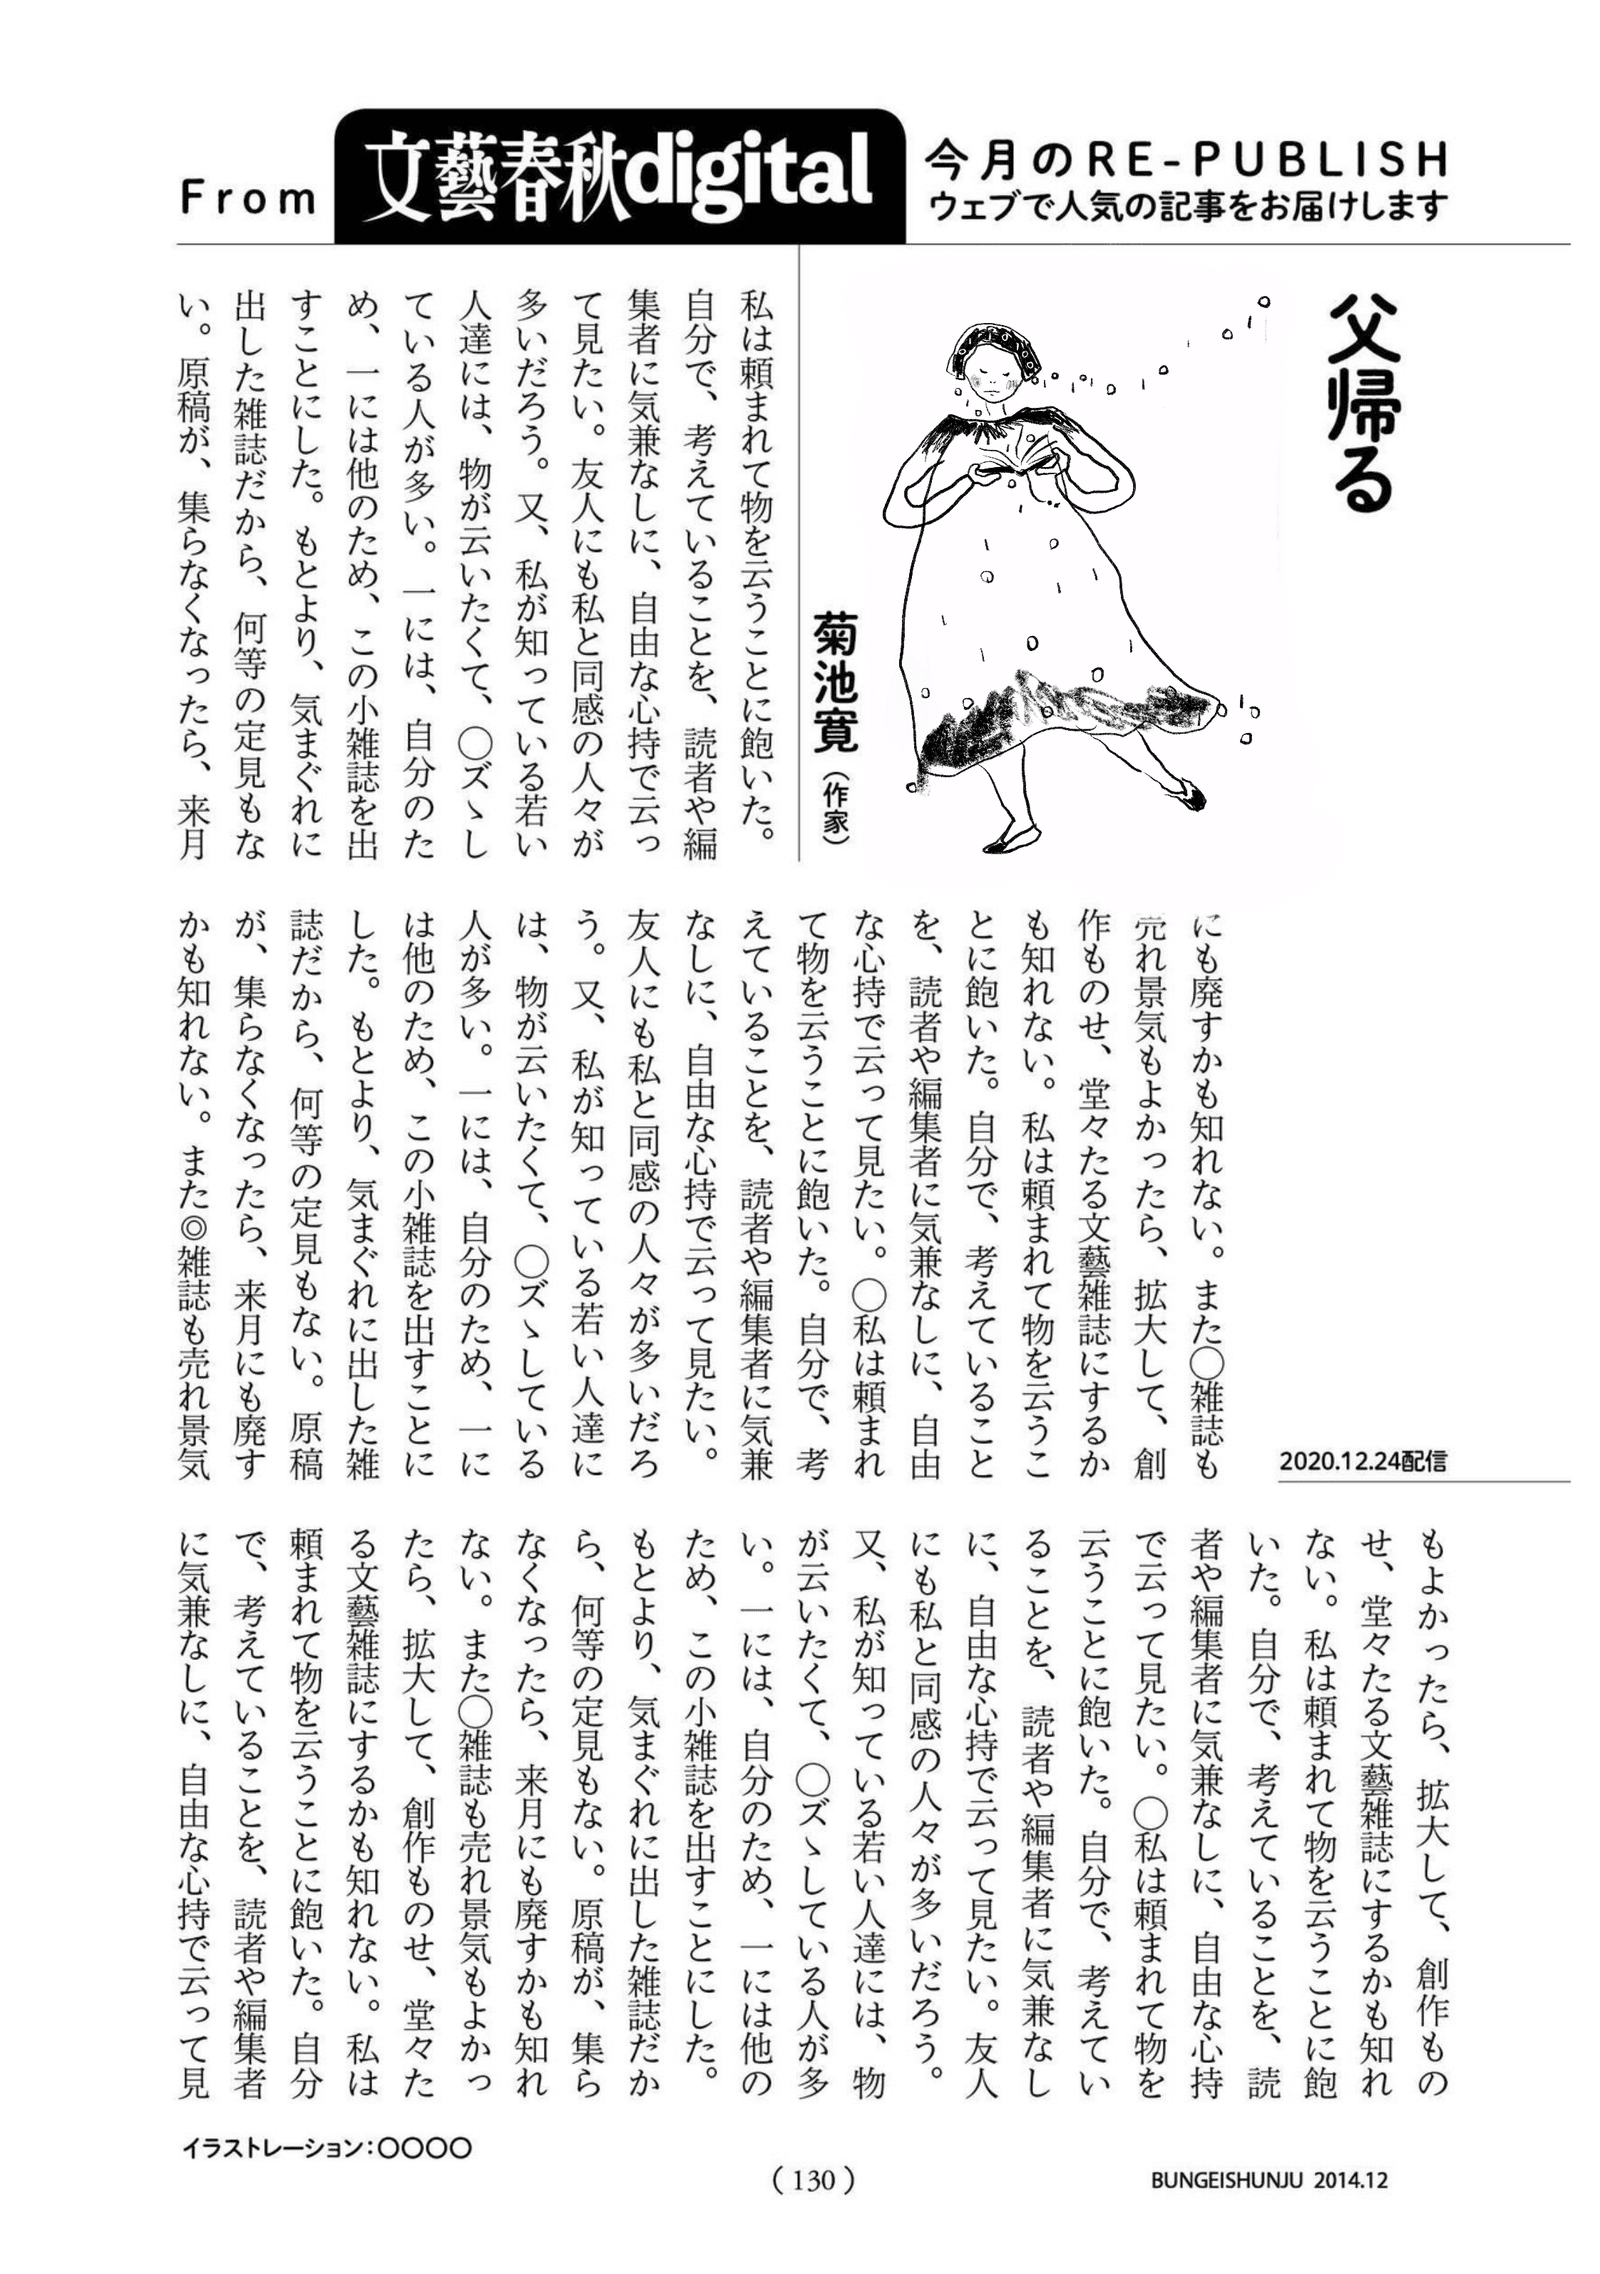 From 文藝春秋digital
今月のRE-PUBLISH
ウェブで人気の記事をお届けします
父帰る
菊池寛（作家）
私は頼まれて物を云うことに飽いた。
自分で、考えていることを、読者や編
集者に気兼なしに、自由な心持で云っ
て見たい。友人にも私と同感の人々が
多いだろう。又、私が知っている若い
人達には、物が云いたくて、〇ズゝし
ている人が多い。一には、自分のた
め、一には他のため、この小雑誌を出
すことにした。もとより、気まぐれに
出した雑誌だから、何等の定見もな
い。原稿が、集らなくなったら、来月
にも廃すかも知れない。また〇雑誌も
売れ景気もよかったら、拡大して、創
作ものせ、堂々たる文藝雑誌にするか
も知れない。私は頼まれて物を云うこ
とに飽いた。自分で、考えていること
を、読者や編集者に気兼なしに、自由
な心持で云って見たい。〇私は頼まれ
て物を云うことに飽いた。自分で、考
えていることを、読者や編集者に気兼
なしに、自由な心持で云って見たい。
友人にも私と同感の人々が多いだろ
う。又、私が知っている若い人達に
は、物が云いたくて、〇ズゝしている
人が多い。一には、自分のため、一に
は他のため、この小雑誌を出すことに
した。もとより、気まぐれに出した雑
誌だから、何等の定見もない。原稿
が、集らなくなったら、来月にも廃す
かも知れない。また◎雑誌も売れ景気
2020.12.24配信
もよかったら、拡大して、創作もの
せ、堂々たる文藝雑誌にするかも知れ
ない。私は頼まれて物を云うことに飽
いた。自分で、考えていることを、読
者や編集者に気兼なしに、自由な心持
で云って見たい。〇私は頼まれて物を
云うことに飽いた。自分で、考えてい
ることを、読者や編集者に気兼なし
に、自由な心持で云って見たい。友人
にも私と同感の人々が多いだろう。
又、私が知っている若い人達には、物
が云いたくて、〇ズゝしている人が多
い。一には、自分のため、一には他の
ため、この小雑誌を出すことにした。
もとより、気まぐれに出した雑誌だか
ら、何等の定見もない。原稿が、集ら
なくなったら、来月にも廃すかも知れ
ない。また〇雑誌も売れ景気もよかっ
たら、拡大して、創作ものせ、堂々た
る文藝雑誌にするかも知れない。私は
頼まれて物を云うことに飽いた。自分
で、考えていることを、読者や編集者
に気兼なしに、自由な心持で云って見
イラストレーション：〇〇〇〇
（130）
BUNGEISHUNJU 2014.12